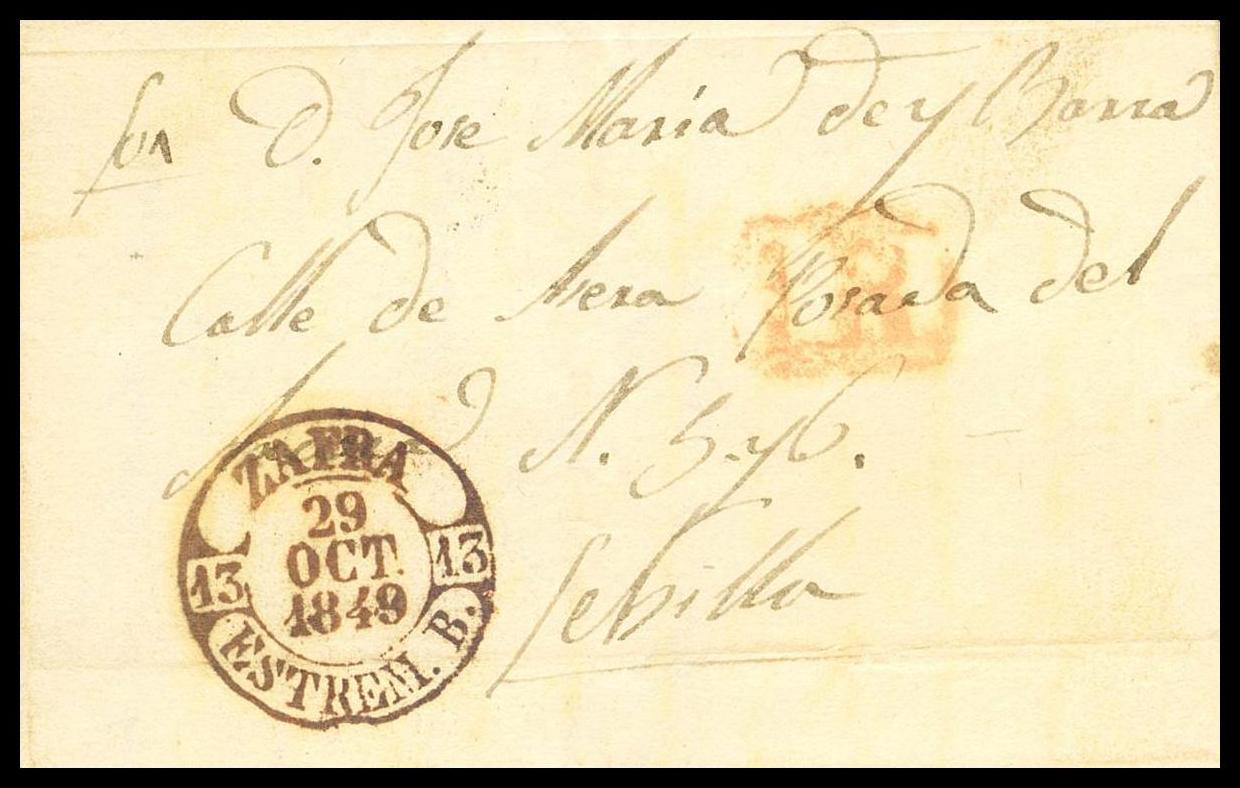 Sor D. Jose Maria de yBarra
Calle de Posada del
N. 5. y 6.
Sebilla
ZAFRA
29
OCT.
1849
13
13
ESTREM. B.